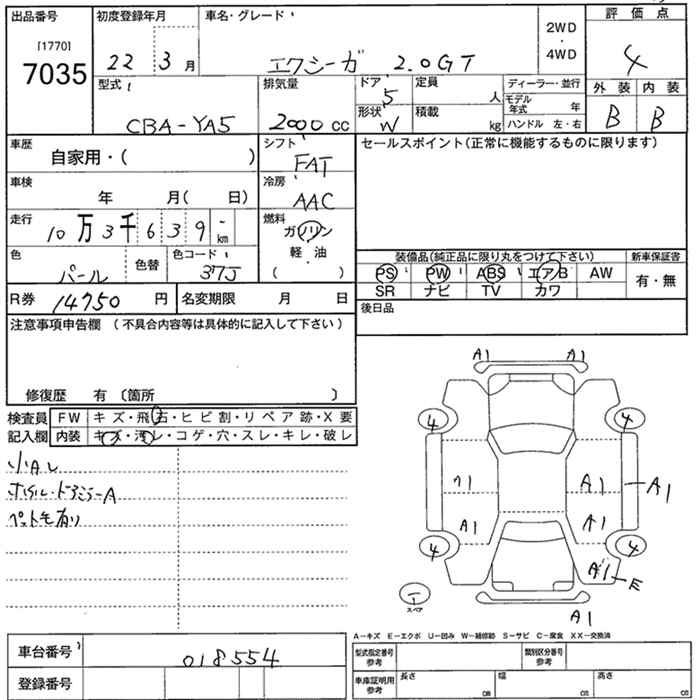 出品番号 初度登録年月 車名・グレード 評価点
[1770]
7035
22 3月
エクシーガ 2.0GT
2WD
・
4WD
4
型式 排気量 ドア 定員 ディーラー・並行 外装 内装
CBA-YA5 2000cc 5 人 モデル年式 年 B B
形状 積載
W kg ハンドル 左・右
車歴 自家用・( ) シフト セールスポイント(正常に機能するものに限ります)
FAT
車検 年 月( 日) 冷房
AAC
走行 10万3千639 km 燃料
ガソリン
軽・油
( ・ )
色 色替 色コード
パール 37J
装備品(純正品に限り丸をつけて下さい) 新車保証書
PS PW ABS エアB AW 有・無
SR ナビ TV カワ
R券 14750円 名変期限 月 日 後日品
注意事項申告欄 (不具合内容等は具体的に記入して下さい)
修復歴 有 〔箇所 〕
検査員 FW キズ・飛石・ヒビ割・リペア跡・X要
記入欄 内装 キズ・汚レ・コゲ・穴・スレ・キレ・破レ
小Aし
ホイル・ドアミラーA
ペット毛有り
A1 A1
4 4
A1 A1 A1
A1 A1
4 4
A1 E
スペア
A1
A-キズ E-エクボ U-凹み W-補修跡 S-サビ C-腐食 XX-交換済
車台番号 018554
型式指定番号 参考 類別区分番号 参考
登録番号
車庫証明用 参考 長さ cm 幅 cm 高さ cm